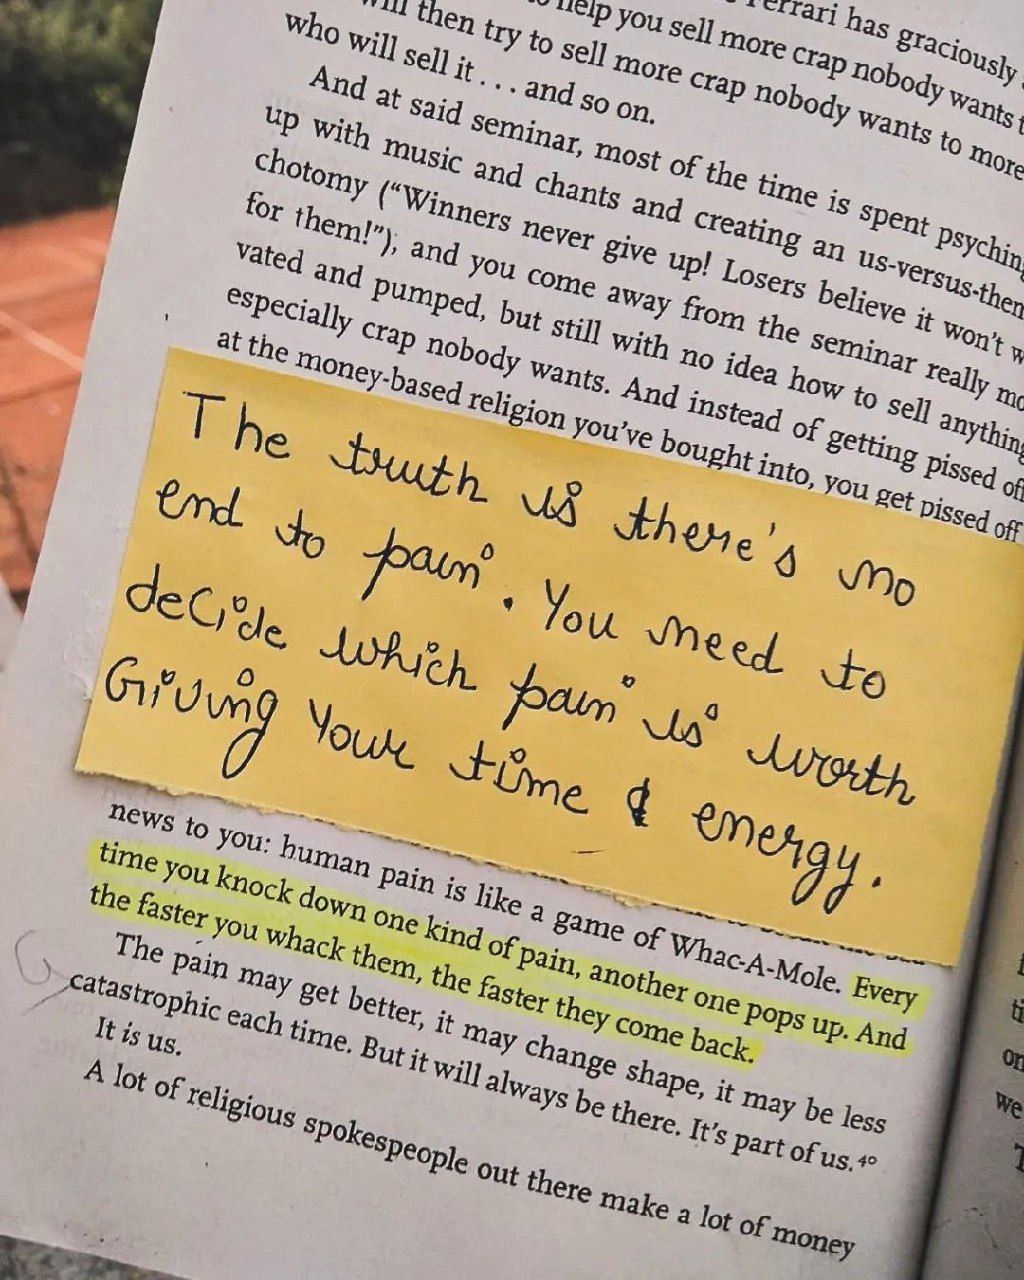 Ferrari has graciously
help you sell more crap nobody wants
will then try to sell more crap nobody wants to more
who will sell it . . . and so on.
And at said seminar, most of the time is spent psyching
up with music and chants and creating an us-versus-them
chotomy (“Winners never give up! Losers believe it won’t
for them!”), and you come away from the seminar really
vated and pumped, but still with no idea how to sell anything
especially crap nobody wants. And instead of getting pissed off
at the money-based religion you’ve bought into, you get pissed off
The truth is there's no
end to pain. You need to
decide which pain is worth
Giving Your time & energy.
news to you: human pain is like a game of Whac-A-Mole. Every
time you knock down one kind of pain, another one pops up. And
the faster you whack them, the faster they come back.
The pain may get better, it may change shape, it may be less
catastrophic each time. But it will always be there. It’s part of us.⁴⁰
It is us.
A lot of religious spokespeople out there make a lot of money
on
we